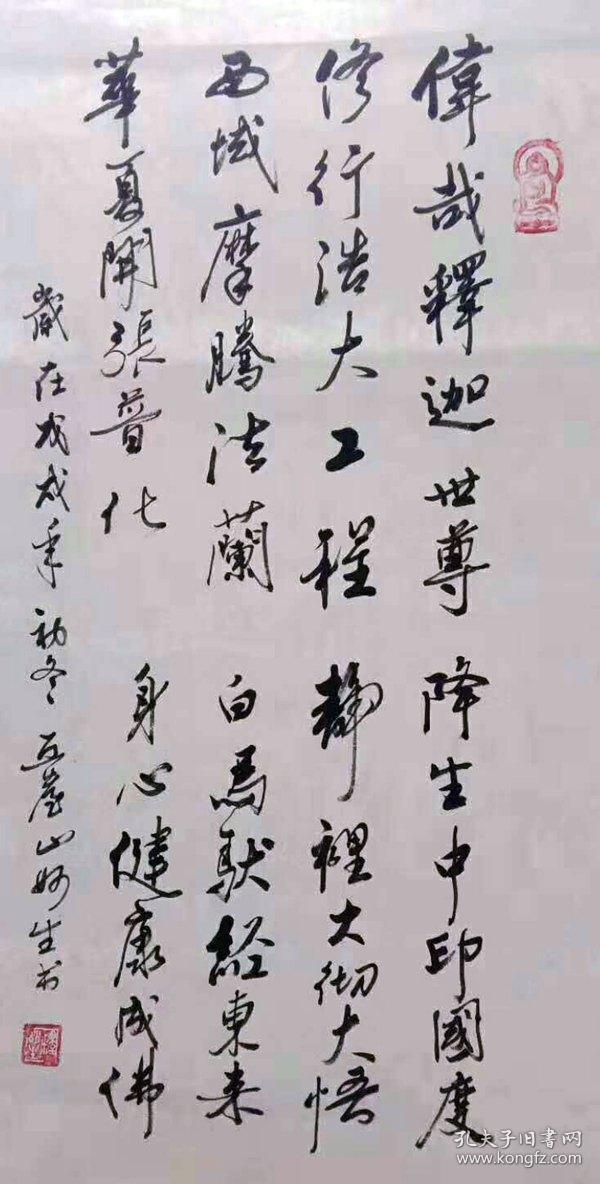 偉哉釋迦世尊 降生中印國度
修行浩大工程 靜裡大彻大悟
西域摩騰法蘭 白馬馱経東来
華夏開張普化 身心健康成佛
歲在戊戌年初冬 五臺山妙生书
孔夫子旧書网
www.kongfz.com